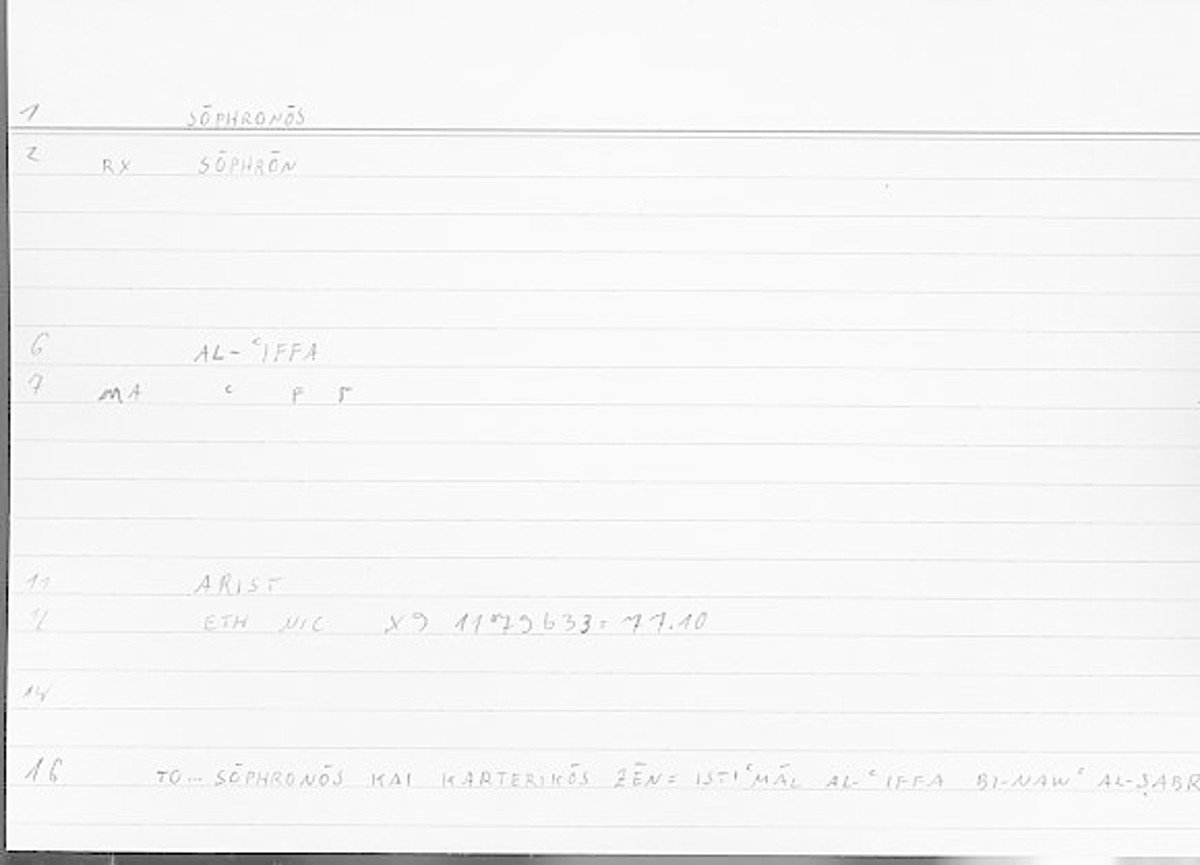 1 SŌPHRONŌS
2 RX SŌPHRŌN
6 AL-ʿIFFA
7 MA ʿ F F
11 ARIST
12 ETH NIC X9 1179b33= 77.10
14
16 TO... SŌPHRONŌS KAI KARTERIKŌS ZĒN= ISTIʿMĀL AL-ʿIFFA BI-NAWʿ AL-ṢABR